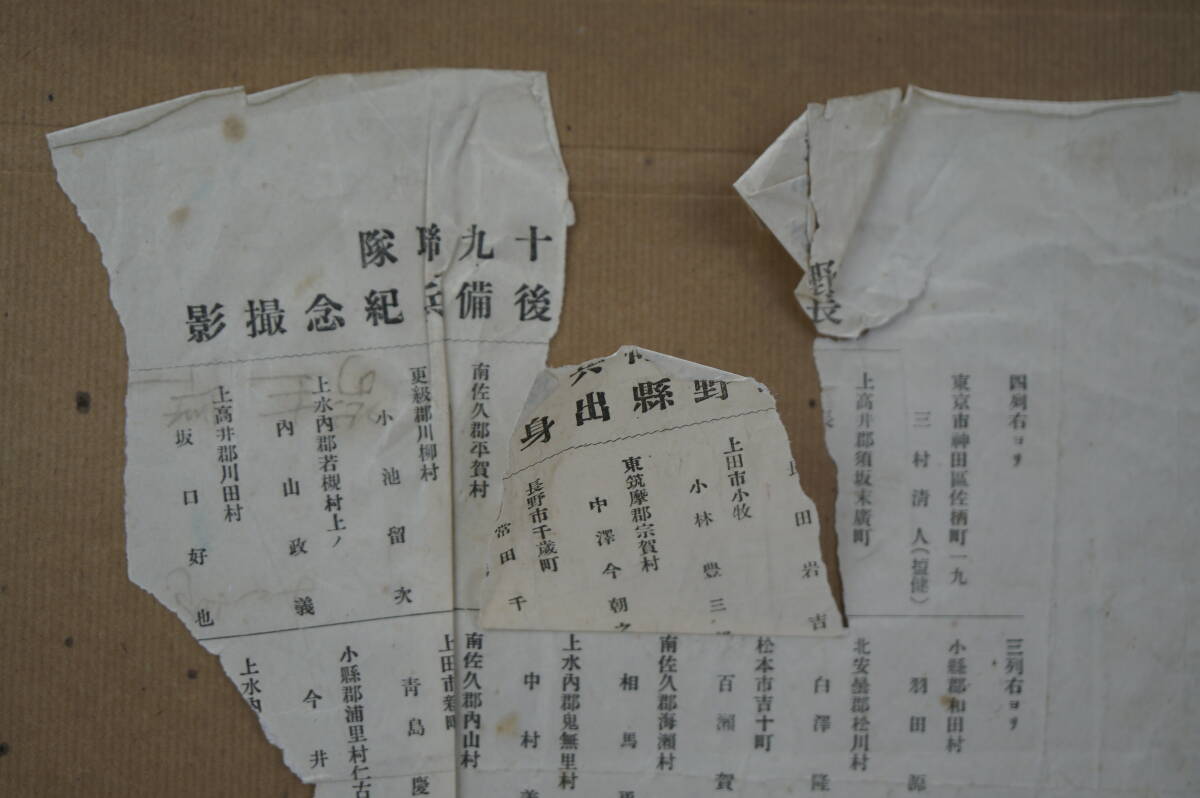 野
長
野縣出身
十九聯隊
後備兵紀念撮影
四列右ヨリ
東京市神田區佐柄町一九
三村清人
上高井郡須坂末廣町
長
田岩吉
上田市小牧
小林豊三
東筑摩郡宗賀村
中澤今朝
長野市千歳町
常田千
南佐久郡平賀村
更級郡川柳村
小池留次
上水内郡若槻村上ノ
内山政義
上高井郡川田村
坂口好也
三列右ヨリ
小縣郡和田村
羽田源
北安曇郡松川村
白澤隆
松本市吉十町
百瀬賀
南佐久郡海瀬村
相馬
上水内郡鬼無里村
中村
南佐久郡内山村
上田市新町
青島慶
小縣郡浦里村仁古
今井
上水内